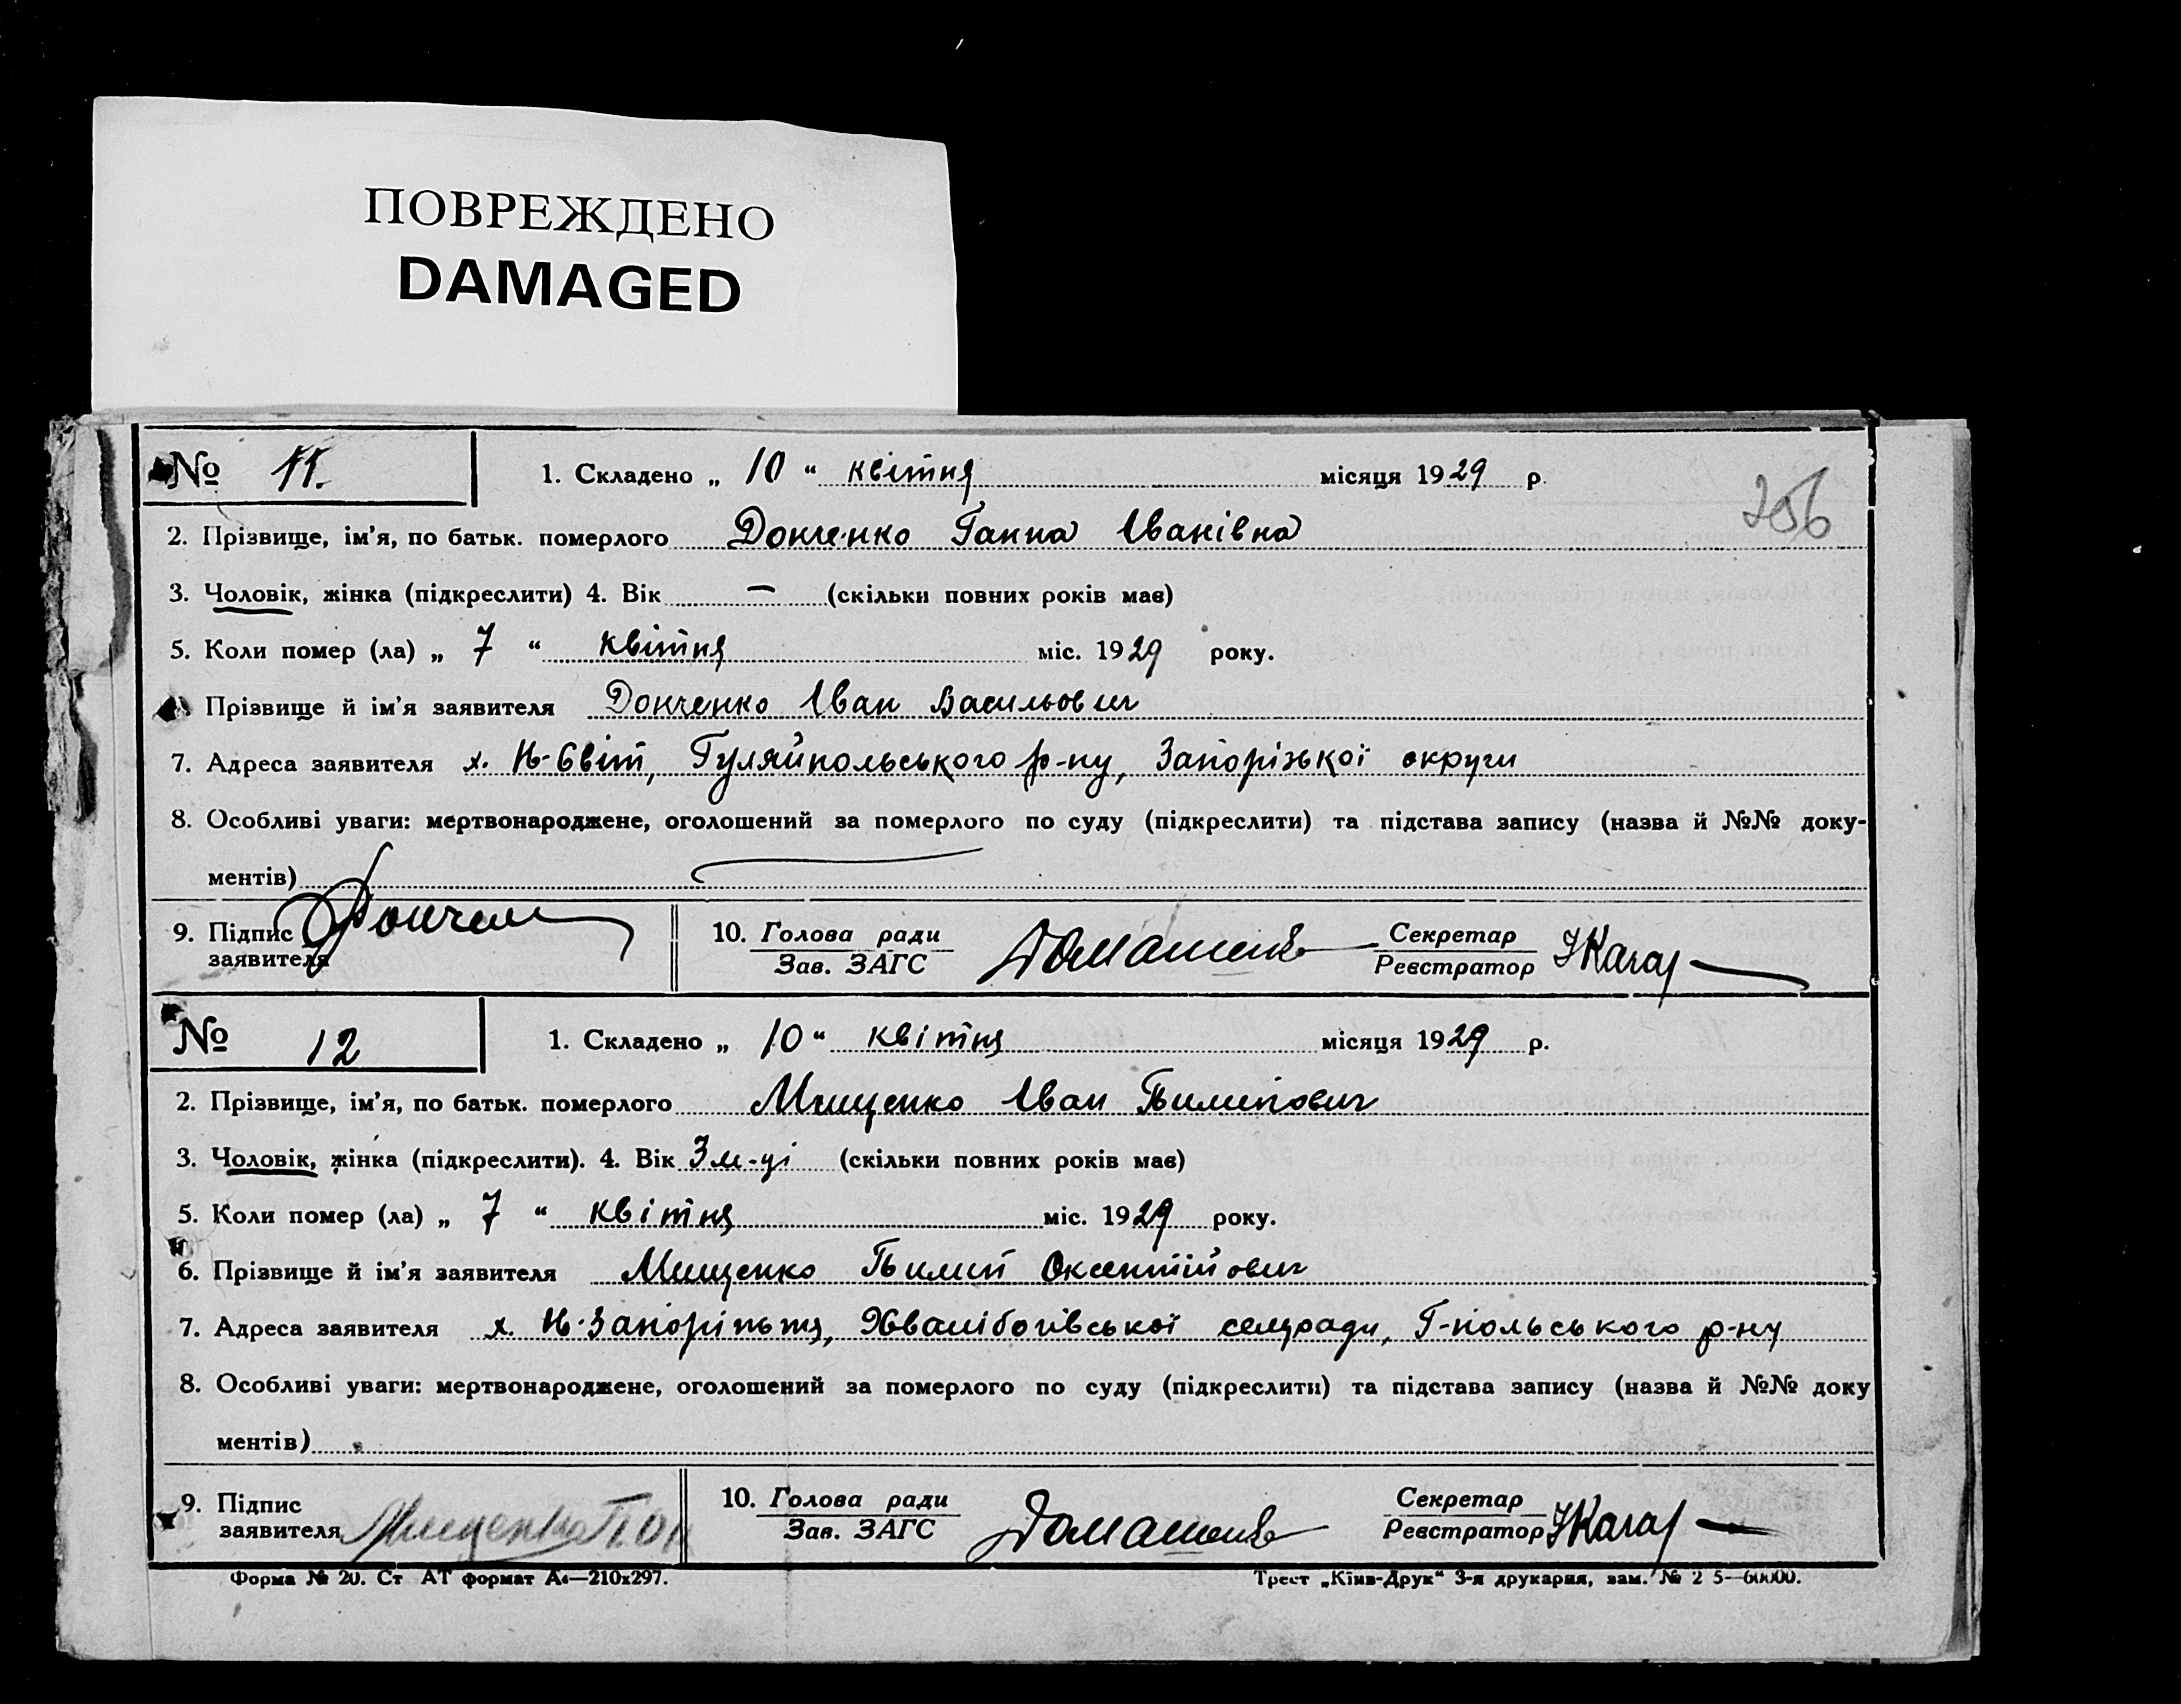 ПОВРЕЖДЕНО
DAMAGED
№ 11. 1. Складено „ 10 “ квітня місяця 1929 р.
256
2. Прізвище, ім’я, по батьк. померлого Донченко Ганна Іванівна
3. Чоловік, жінка (підкреслити) 4. Вік — (скільки повних років має)
5. Коли помер (ла) „ 7 “ квітня міс. 1929 року.
Прізвище й ім’я заявителя Донченко Іван Васильович
7. Адреса заявителя х. Н-Світ, Гуляйпольського р-ну, Запорізької округи
8. Особливі уваги: мертвонароджене, оголошений за померлого по суду (підкреслити) та підстава запису (назва й №№ доку-
ментів)
9. Підпис заявителя Дончен 10. Голова ради Зав. ЗАГС Домашенко Секретар Реєстратор
№ 12 1. Складено „ 10 “ квітня місяця 1929 р.
2. Прізвище, ім’я, по батьк. померлого Мищенко Іван Пилипович
3. Чоловік, жінка (підкреслити). 4. Вік 3 м-ці (скільки повних років має)
5. Коли помер (ла) „ 7 “ квітня міс. 1929 року.
6. Прізвище й ім’я заявителя Мищенко Пилип Оксентійович
7. Адреса заявителя х. Н-Запоріжжя, Хвалібогівської сельради, Г-польського р-ну
8. Особливі уваги: мертвонароджене, оголошений за померлого по суду (підкреслити) та підстава запису (назва й №№ доку
ментів)
9. Підпис заявителя Мищенко П. Ок 10. Голова ради Зав. ЗАГС Домашенко Секретар Реєстратор
Форма № 20. Ст АТ формат А4—210х297. Трест „Київ-Друк“ 3-я друкарня, зам. № 2 5—60000.